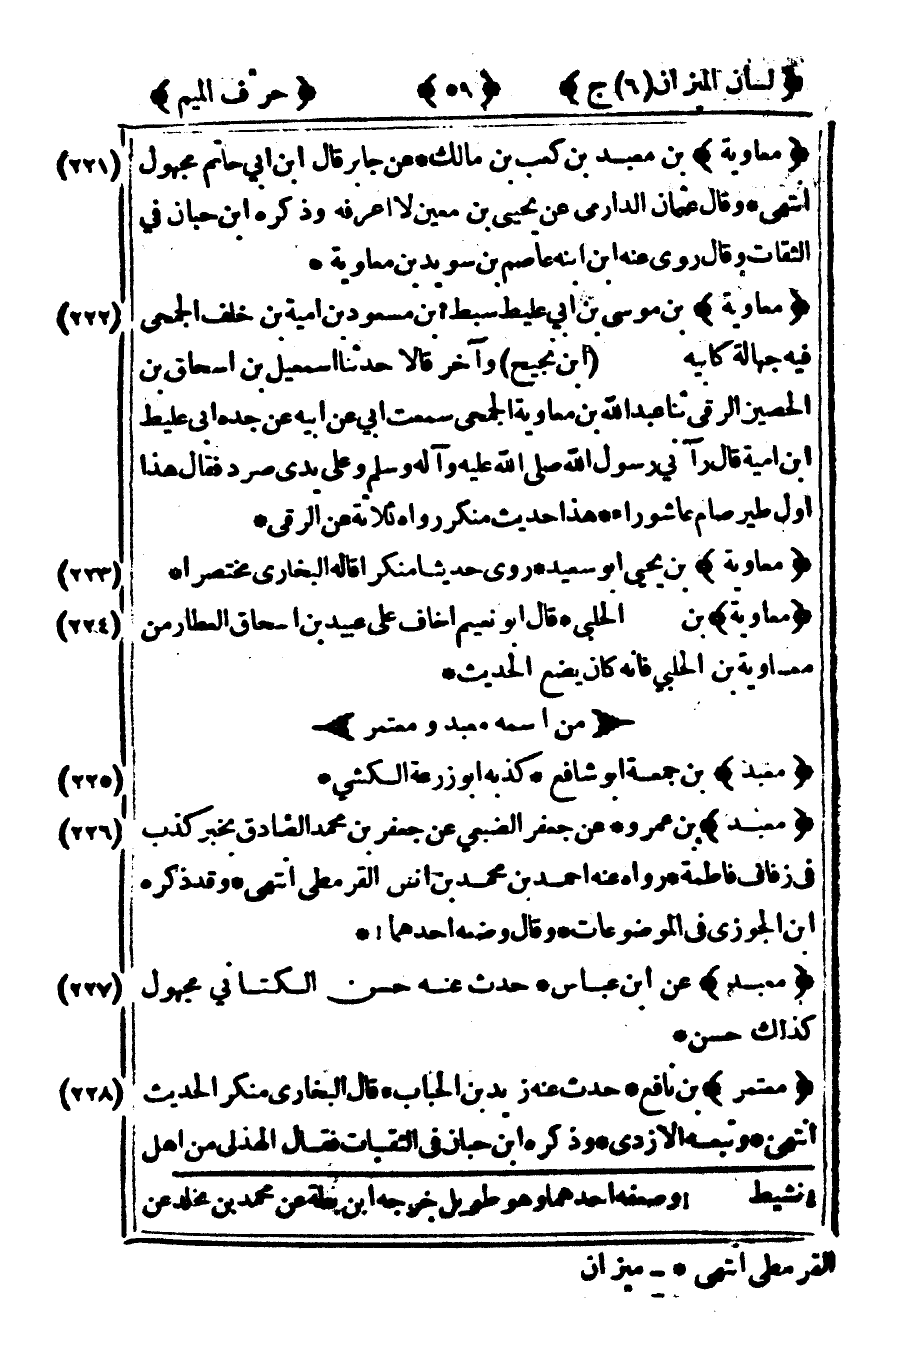 ﴿ لسان الميزان (٦) ج ﴾ ﴿ ٥٩ ﴾ ﴿ حرف الميم ﴾
﴿ معاوية ﴾ بن معبد بن كعب بن مالك * عن جابر قال ابن ابي حاتم مجهول (٢٢١)
انتهى * وقال عثمان الدارمى عن يحيى بن معين لا اعرفه وذكره ابن حبان في
الثقات وقال روى عنه ابن ابنه عاصم بن سويد بن معاوية *
﴿ معاوية ﴾ بن موسى بن ابي غليط سبط ابن مسعود بن امية بن خلف الجمحى (٢٢٢)
فيه جهالة كابيه (ابن نجيح) وآخر قالا حدثنا اسمعيل بن اسحاق بن
الحصين الرقى ثنا عبدالله بن معاوية الجمحى سمعت ابي عن ابيه عن جده ابى غليط
ابن امية قال رآني رسول الله صلى الله عليه وآله وسلم وعلى يدى صرد فقال هذا
اول طير صام عاشوراء * هذا حديث منكر رواه ثلاثة عن الرقى *
﴿ معاوية ﴾ بن يحيى ابو سعيد * روى حديثا منكرا قاله البخارى مختصرا * (٢٢٣)
﴿ معاوية ﴾ بن الحلبي * قال ابو نعيم اخاف على عبيد بن اسحاق العطار من (٢٢٤)
معاوية بن الحلبي فانه كان يضع الحديث *
﴿ من اسمه معبد و معتمر ﴾
﴿ معبد ﴾ بن جمعة ابو شافع * كذبه ابو زرعة الكشي * (٢٢٥)
﴿ معبد ﴾ بن عمرو * عن جعفر الضبعي عن جعفر بن محمد الصادق بخبر كذب (٢٢٦)
فى زفاف فاطمة * رواه عنه احمد بن محمد بن انس القرمطى انتهى * وقد ذكره
ابن الجوزى فى الموضوعات * وقال وضعه احدهما ١ *
﴿ معبد ﴾ عن ابن عباس * حدث عنه حسن الكتاني مجهول (٢٢٧)
كذاك حسن *
﴿ معتمر ﴾ بن نافع * حدث عنه زيد بن الحباب * قال البخارى منكر الحديث (٢٢٨)
انتهى * وتبعه الازدى * وذكره ابن حبان فى الثقات فقال الهذلى من اهل
نشيط ١ وصعفه احدهما وهو طويل خرجه ابن بطة عن محمد بن مخلد عن
القرمطى انتهى * ـ ميزان